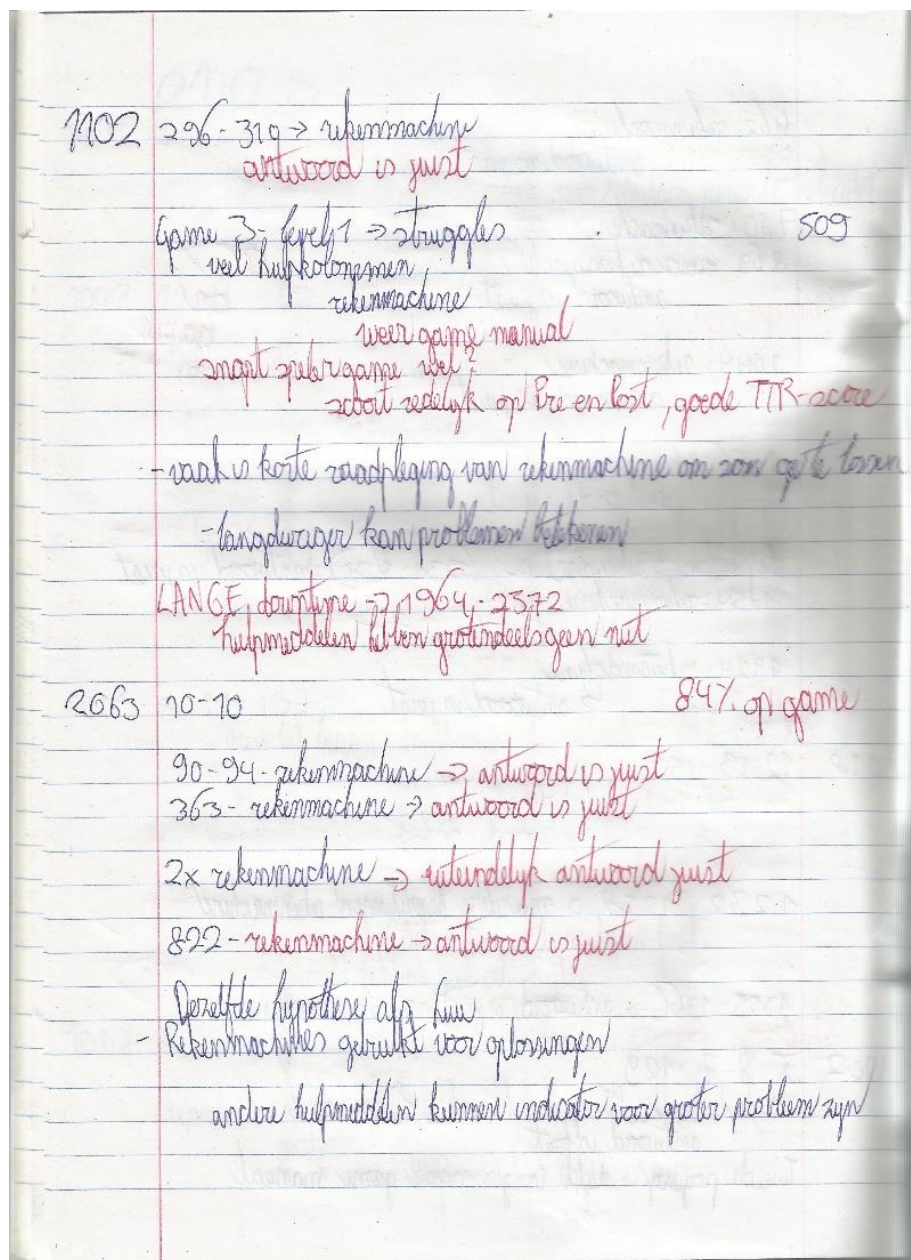 1102 296-319 → rekenmachine
antwoord is juist
Game 3, level 1 → struggles 509
veel hulpkolommen,
rekenmachine
weer game manual
snapt speler game wel?
scoort redelijk op Pre en Post, goede TTR-score
- vaak is korte raadpleging van rekenmachine om som op te lossen
- langduriger kan problemen betekenen
LANGE downtime → 1964 - 2572
hulpmiddelen hebben grotendeels geen nut
2063 10-10 84% op game
90-94 - rekenmachine → antwoord is juist
363 - rekenmachine → antwoord is juist
2x rekenmachine → uiteindelijk antwoord juist
822 - rekenmachine → antwoord is juist
Dezelfde hypothese als
- Rekenmachines gebruikt voor oplossingen
andere hulpmiddelen kunnen indicator voor groter probleem zijn